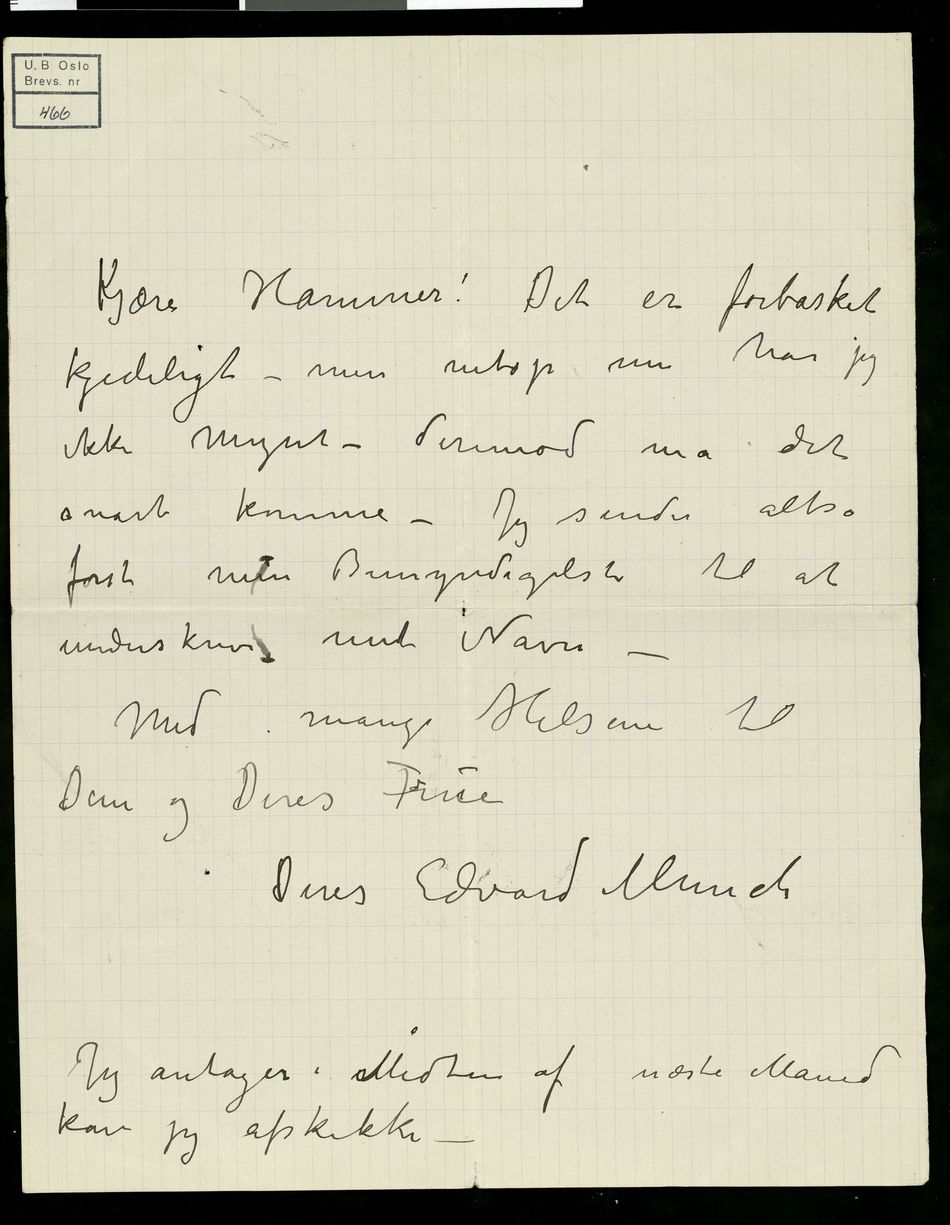 U.B Oslo
Brevs. nr
466
Kjære Hammer! Det er forbasket
kjedeligt – men netop nu har jeg
ikke Mynt – derimod må det
snart komme – Jeg sender altså
først min Bemyndigelse til at
underskrive mit Navn –
Med mange Hilsener til
Dem og Deres Frue
Deres Edvard Munch
Jeg antager i Midten af næste Maaned
kan jeg afskikke –